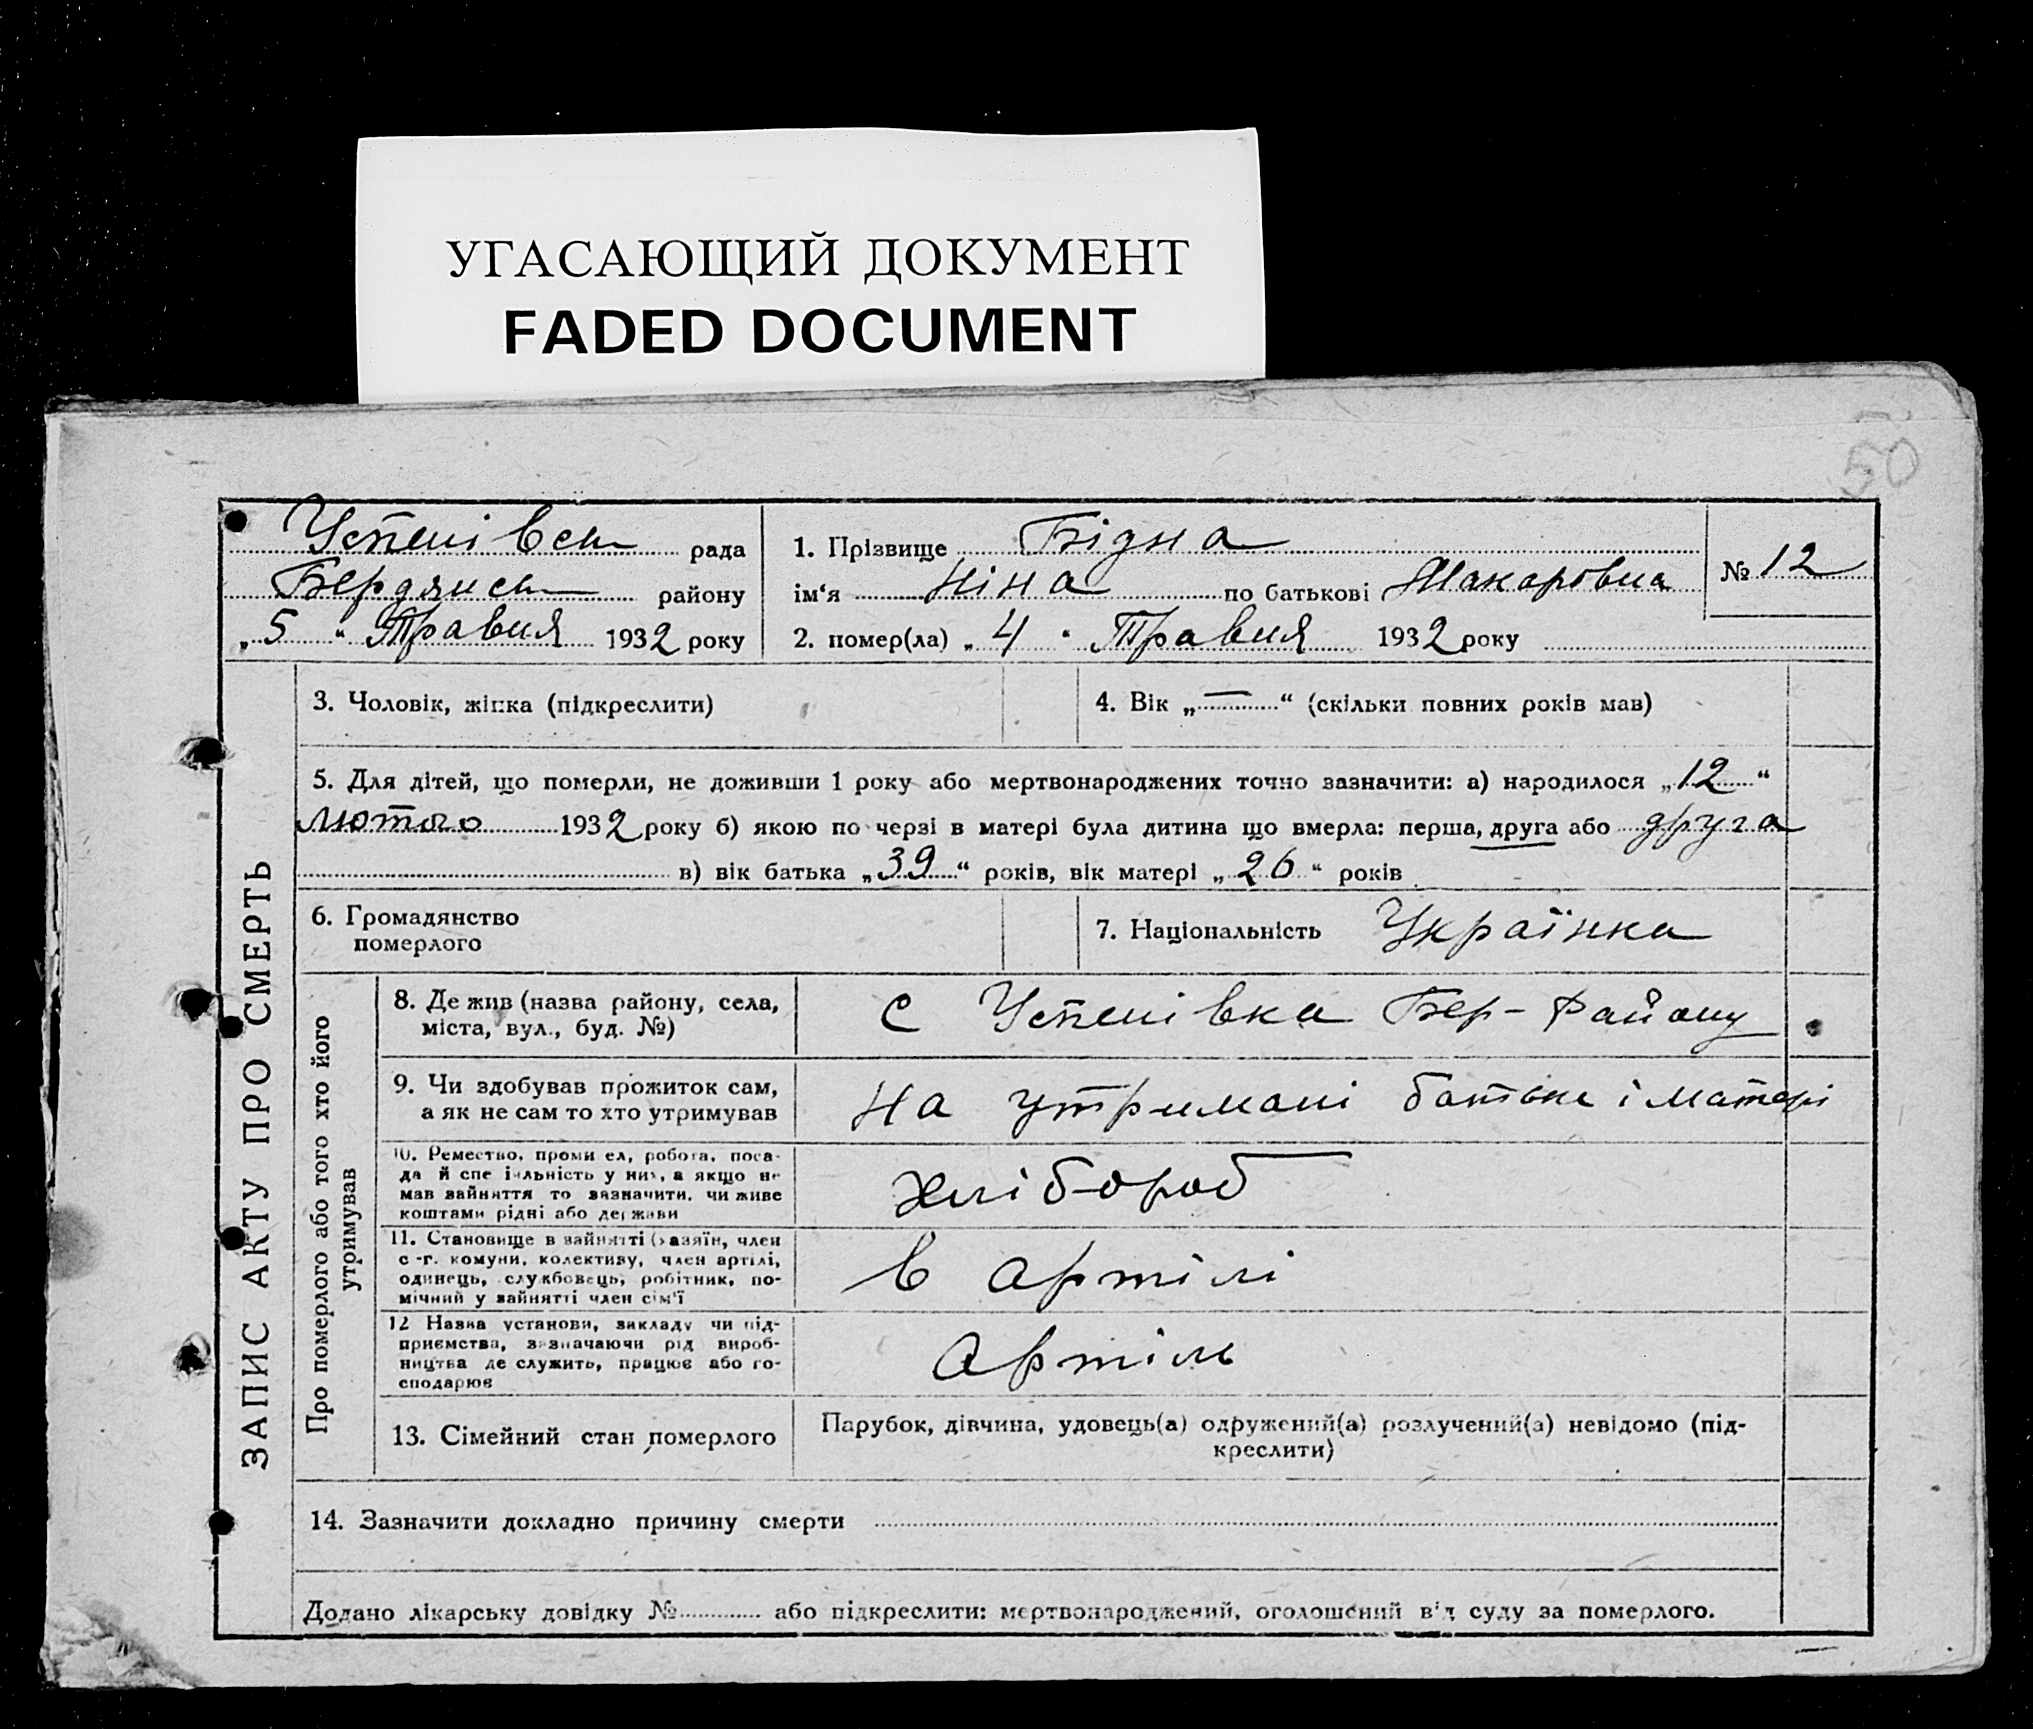 УГАСАЮЩИЙ ДОКУМЕНТ
FADED DOCUMENT
50
Успенівськ рада
Бердянськ району
„5“ Травня 1932 року
1. Прізвище Бідна
ім‘я Ніна по батькові Макаровна
№ 12
2. помер(ла) „4“ Травня 1932 року
ЗАПИС АКТУ ПРО СМЕРТЬ
3. Чоловік, жінка (підкреслити)
4. Вік „—“ (скільки повних років мав)
5. Для дітей, що померли, не доживши 1 року або мертвонароджених точно зазначити: а) народилося „12“
лютого 1932 року б) якою по черзі в матері була дитина що вмерла: перша, друга або друга
в) вік батька „39“ років, вік матері „26“ років
6. Громадянство
померлого
7. Національність Українка
Про померлого або того хто його
утримував
8. Де жив (назва району, села,
міста, вул., буд. №)
с Успенівка Бер-Району
9. Чи здобував прожиток сам,
а як не сам то хто утримував
На утримані батька і матері
10. Ремество, промисел, робота, поса-
да й спеціяльність у них, а якщо не
мав зайняття то зазначити, чи живе
коштами рідні або держави
хлібороб
11. Становище в зайнятті (хазяїн, член
с.-г. комуни, колективу, член артілі,
одинець, службовець, робітник, по-
мічний у зайнятті член сім‘ї
в артілі
12 Назва установи, закладу чи під-
приємства, зазначаючи рід вироб-
ництва де служить, працює або го-
сподарює
Артіль
13. Сімейний стан померлого
Парубок, дівчина, удовець(а) одружений(а) розлучений(а) невідомо (під-
креслити)
14. Зазначити докладно причину смерти
Додано лікарську довідку № або підкреслити: мертвонароджений, оголошений від суду за померлого.